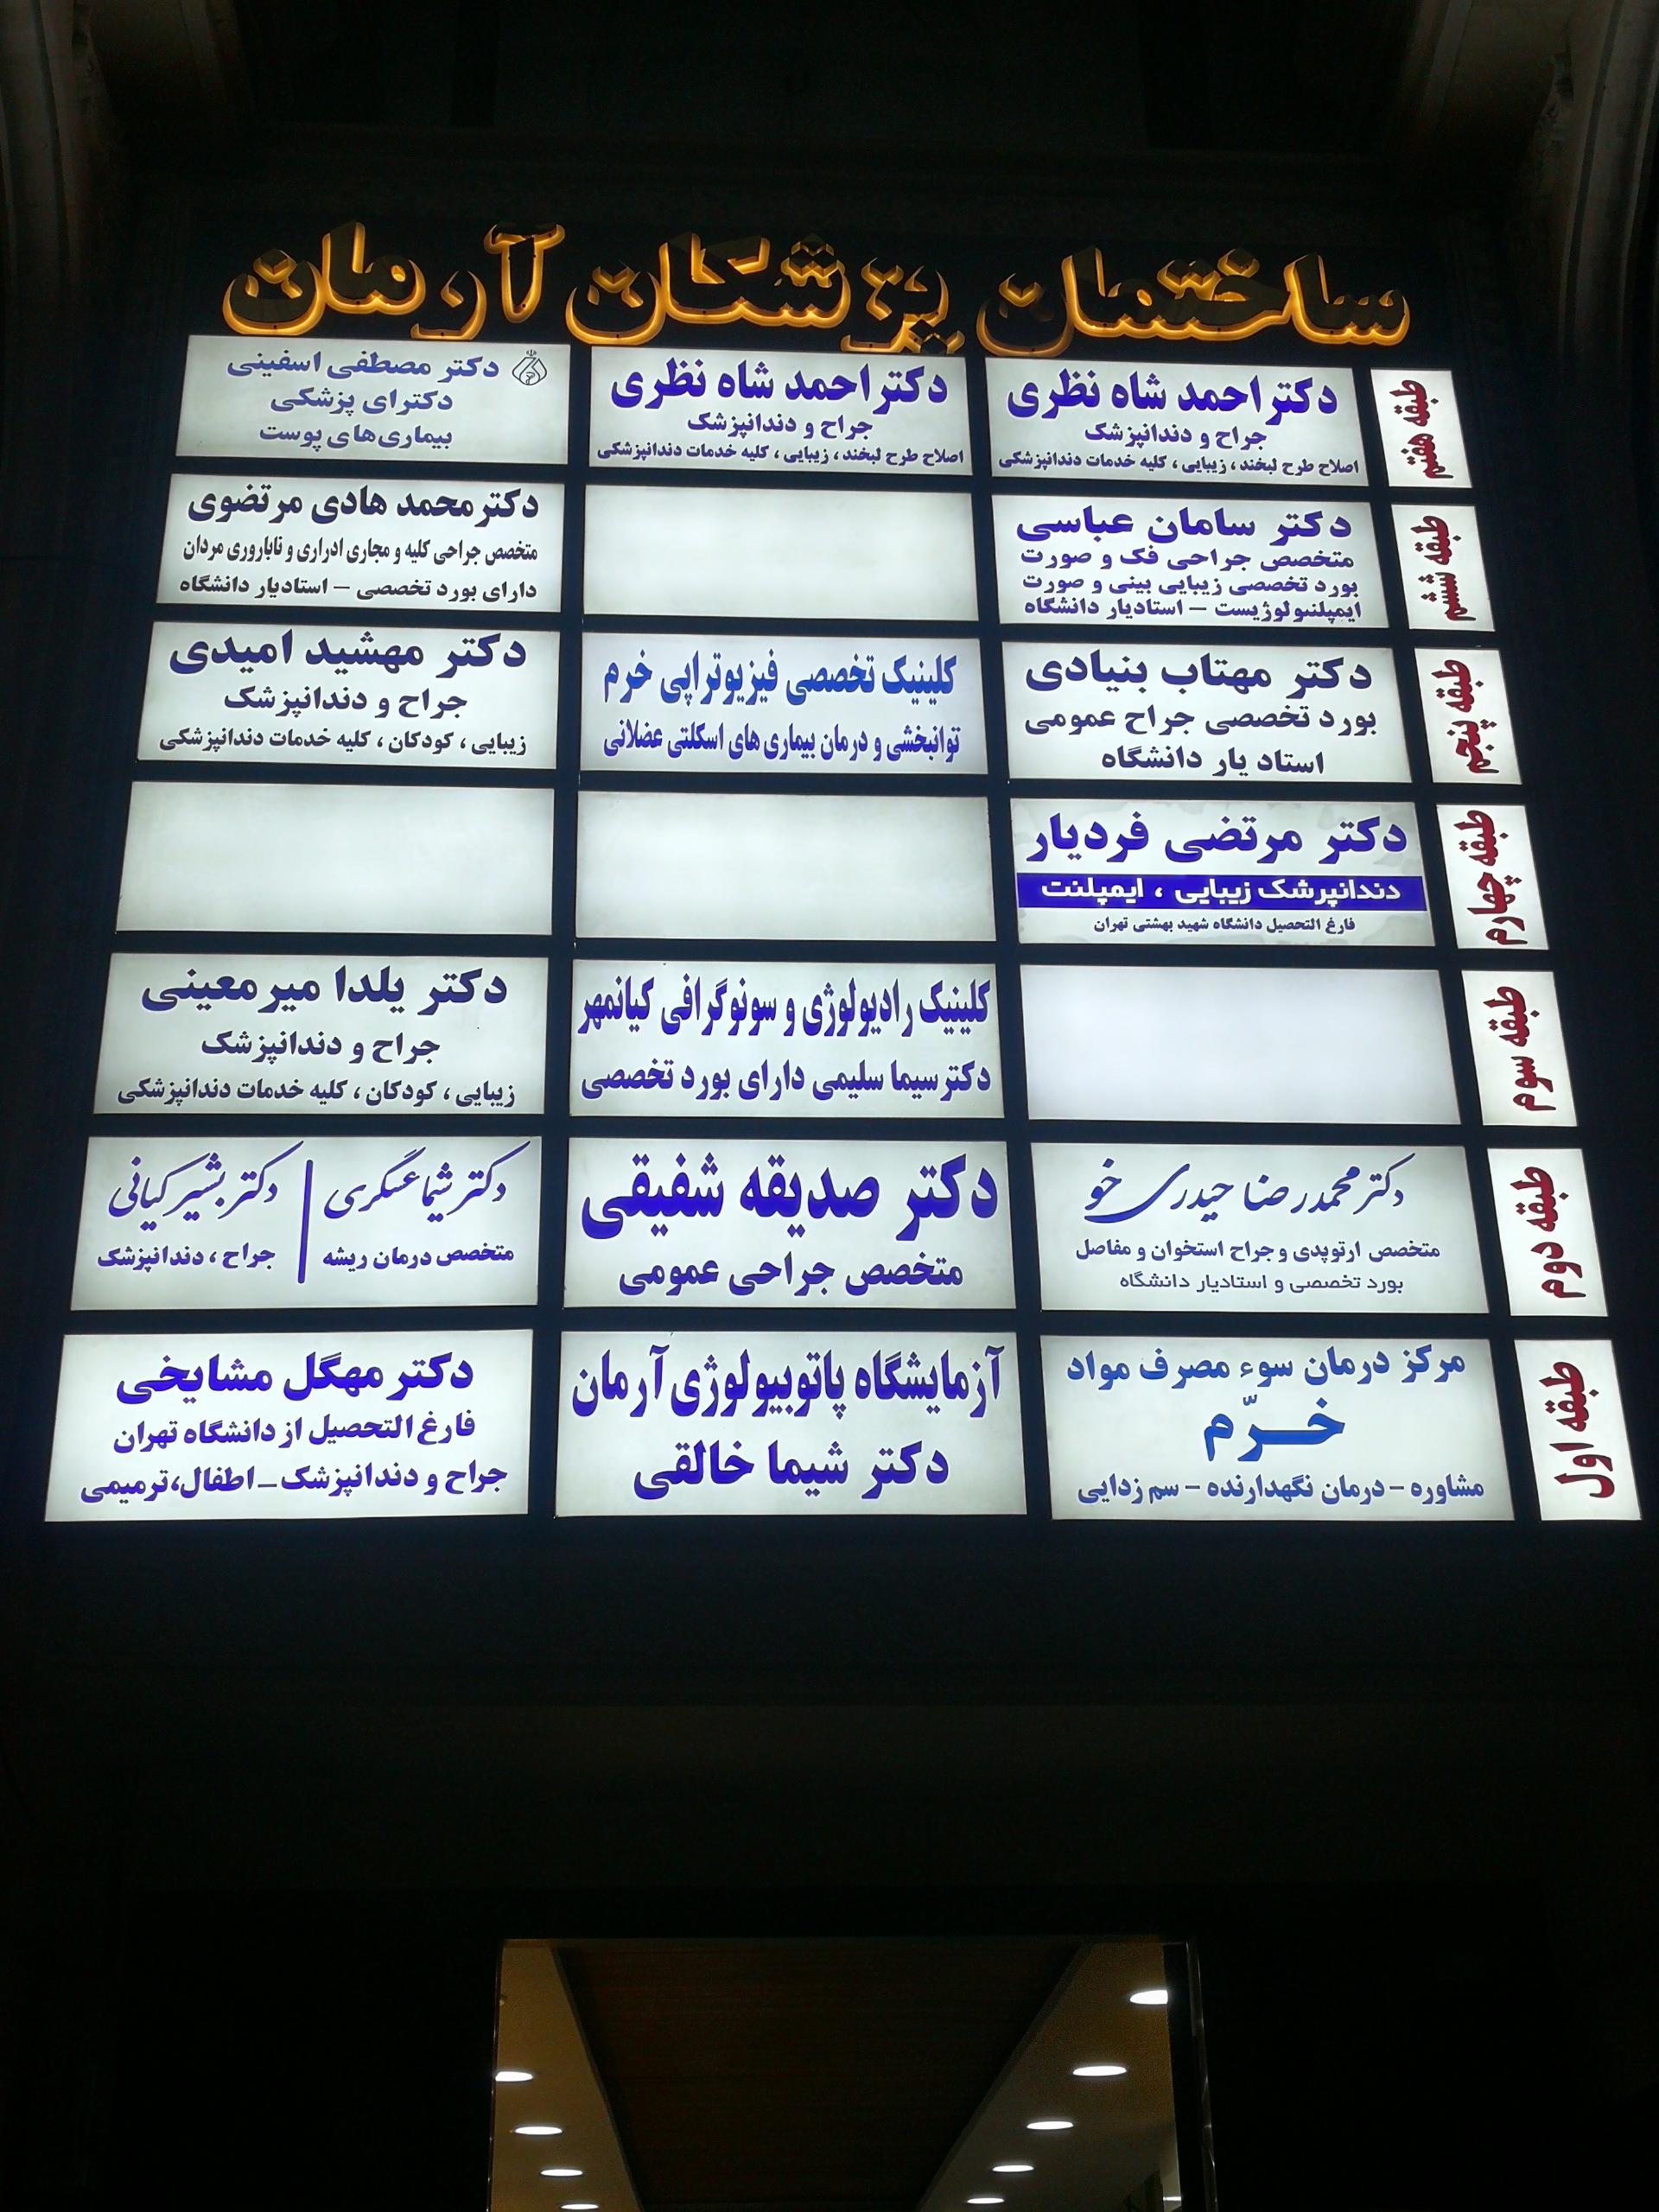 ساختمان پزشکان آرمان
طبقه هفتم
دکتر احمد شاه نظری
جراح و دندانپزشک
اصلاح طرح لبخند ، زیبایی ، کلیه خدمات دندانپزشکی
دکتر احمد شاه نظری
جراح و دندانپزشک
اصلاح طرح لبخند ، زیبایی ، کلیه خدمات دندانپزشکی
دکتر مصطفی اسفینی
دکترای پزشکی
بیماری‌های پوست
طبقه ششم
دکتر سامان عباسی
متخصص جراحی فک و صورت
بورد تخصصی زیبایی بینی و صورت
ایمپلنتولوژیست – استادیار دانشگاه
دکتر محمد هادی مرتضوی
متخصص جراحی کلیه و مجاری ادراری و ناباروری مردان
دارای بورد تخصصی – استادیار دانشگاه
طبقه پنجم
دکتر مهتاب بنیادی
بورد تخصصی جراح عمومی
استاد یار دانشگاه
کلینیک تخصصی فیزیوتراپی خرم
توانبخشی و درمان بیماری های اسکلتی عضلانی
دکتر مهشید امیدی
جراح و دندانپزشک
زیبایی ، کودکان ، کلیه خدمات دندانپزشکی
طبقه چهارم
دکتر مرتضی فردیار
دندانپزشک زیبایی ، ایمپلنت
فارغ التحصیل دانشگاه شهید بهشتی تهران
طبقه سوم
کلینیک رادیولوژی و سونوگرافی کیانمهر
دکتر سیما سلیمی دارای بورد تخصصی
دکتر یلدا میرمعینی
جراح و دندانپزشک
زیبایی ، کودکان ، کلیه خدمات دندانپزشکی
طبقه دوم
دکتر محمدرضا حیدری خو
متخصص ارتوپدی و جراح استخوان و مفاصل
بورد تخصصی و استادیار دانشگاه
دکتر صدیقه شفیقی
متخصص جراحی عمومی
دکتر شیما عسگری
متخصص درمان ریشه
دکتر بشیر کیانی
جراح ، دندانپزشک
طبقه اول
مرکز درمان سوء مصرف مواد
خرّم
مشاوره – درمان نگهدارنده – سم زدایی
آزمایشگاه پاتوبیولوژی آرمان
دکتر شیما خالقی
دکتر مهگل مشایخی
فارغ التحصیل از دانشگاه تهران
جراح و دندانپزشک_اطفال،ترمیمی